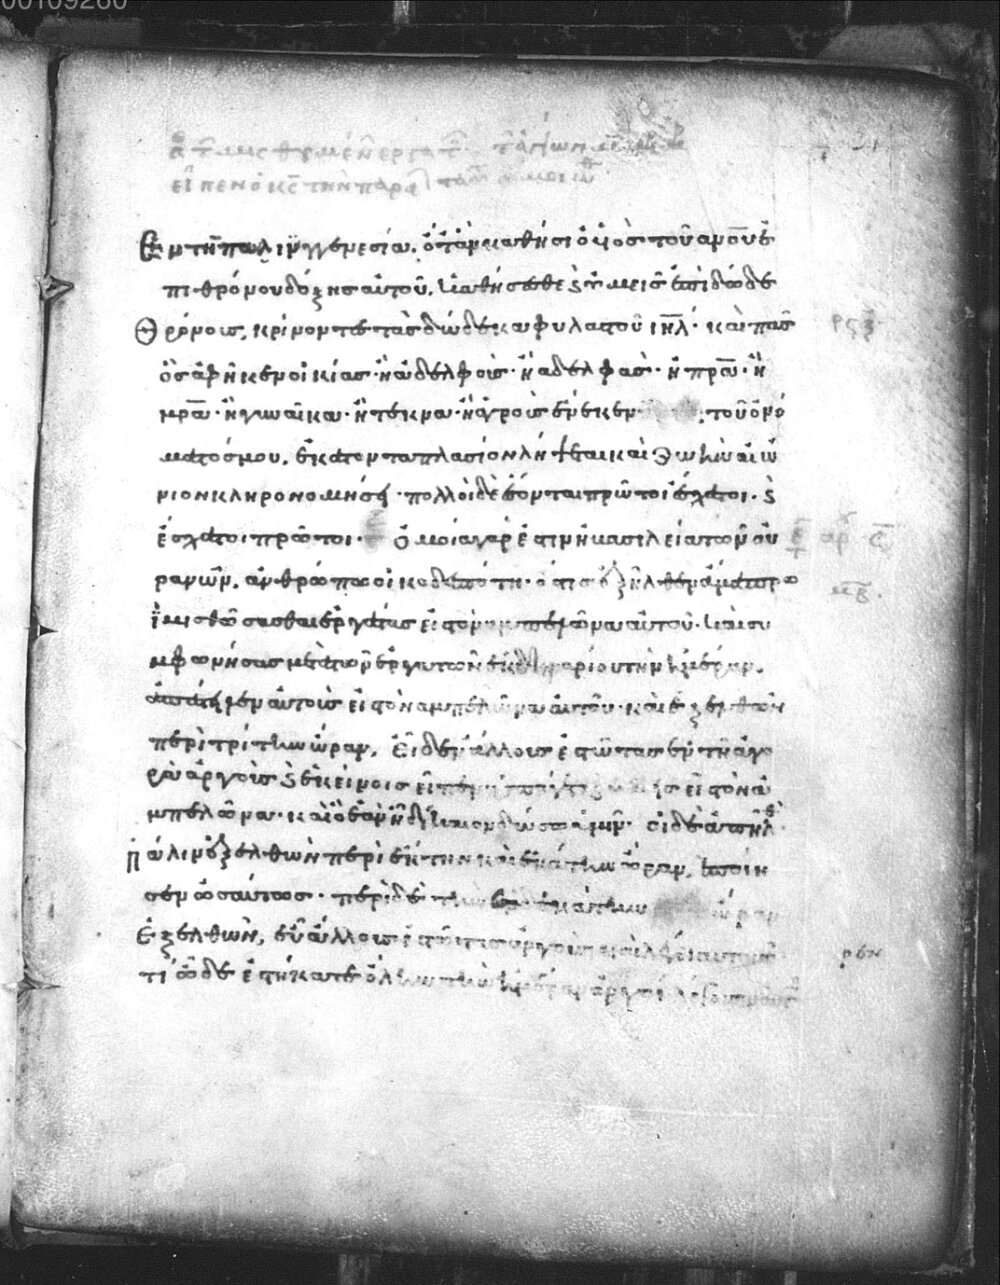 00109260
εἶπεν ὁ κς τὴν παρα
Ἐν τῆ παλινγγενεσία, ὅταν καθήσι ὁ υἱὸς τοῦ ανου ἐ
πι θρόνου δόξης αὐτοῦ, καθήσεσθε κ ὑμεῖς ἐπὶ δώδε
Θρόνοις, κρίνοντες τὰς δώδεκα φυλὰς τοῦ ιηλ· καὶ πας
ὃς ἀφῆκεν οἰκίας· ἢ ἀδελφοὺς· ἢ αδελφὰς· ἢ πρα· ἢ
μρα· ἢ γυναῖκα· ἢ τέκνα· ἢ ἀγροὺς ἕνεκεν τοῦ ὀνό
ματός μου, ἑκατονταπλασίονα λήψεται καὶ ζωὴν αἰώ
νιον κληρονομήσει· πολλοὶ δὲ ἔσονται πρῶτοι ἔσχατοι· κ
ἔσχατοι πρῶτοι· Ὁμοία γαρ ἐστιν ἡ βασιλεία τῶν οὐ
ρανῶν, ανθρώπω οἰκοδεσπότη· ὅστις ἐξῆλθεν ἅμα πρωῒ
μισθώσασθαι ἐργάτας εἰς τὸν ἀμπελῶνα αὐτοῦ· καὶ συ
μφωνήσας μετὰ τῶν ἐργατῶν ἐκ δηναρίου τὴν ἡμέραν,
ἀπέστειλεν αὐτοὺς εἰς τὸν αμπελῶνα αὐτοῦ· καὶ ἐξελθὼν
περὶ τρίτην ὥραν, εἶδεν ἄλλους ἑστῶτας ἐν τῆ ἀγο
ρᾶ ἀργοὺς κ ἐκείνοις εἶπεν εἰς τὸν ἀ
μπελῶνα· καὶ ὃ ἐὰν ἦ δίκαιον δώσω ὑμῖν· οἱ δὲ ἀπῆλθ
Πάλιν ἐξελθὼν περὶ ἕκτην καὶ ἐνάτην ὥραν, ἐποίη
σεν ὡσαύτως· περὶ δὲ τὴν ἑνδεκάτην ὥραν
ἐξελθὼν, εὗρεν ἄλλους ἑστῶτας ἀργοὺς καὶ λέγει αὐτοῖς
τί ὧδε ἑστήκατε ὅλην τὴν ἡμέραν ἀργοί λέγουσιν αὐτῶ